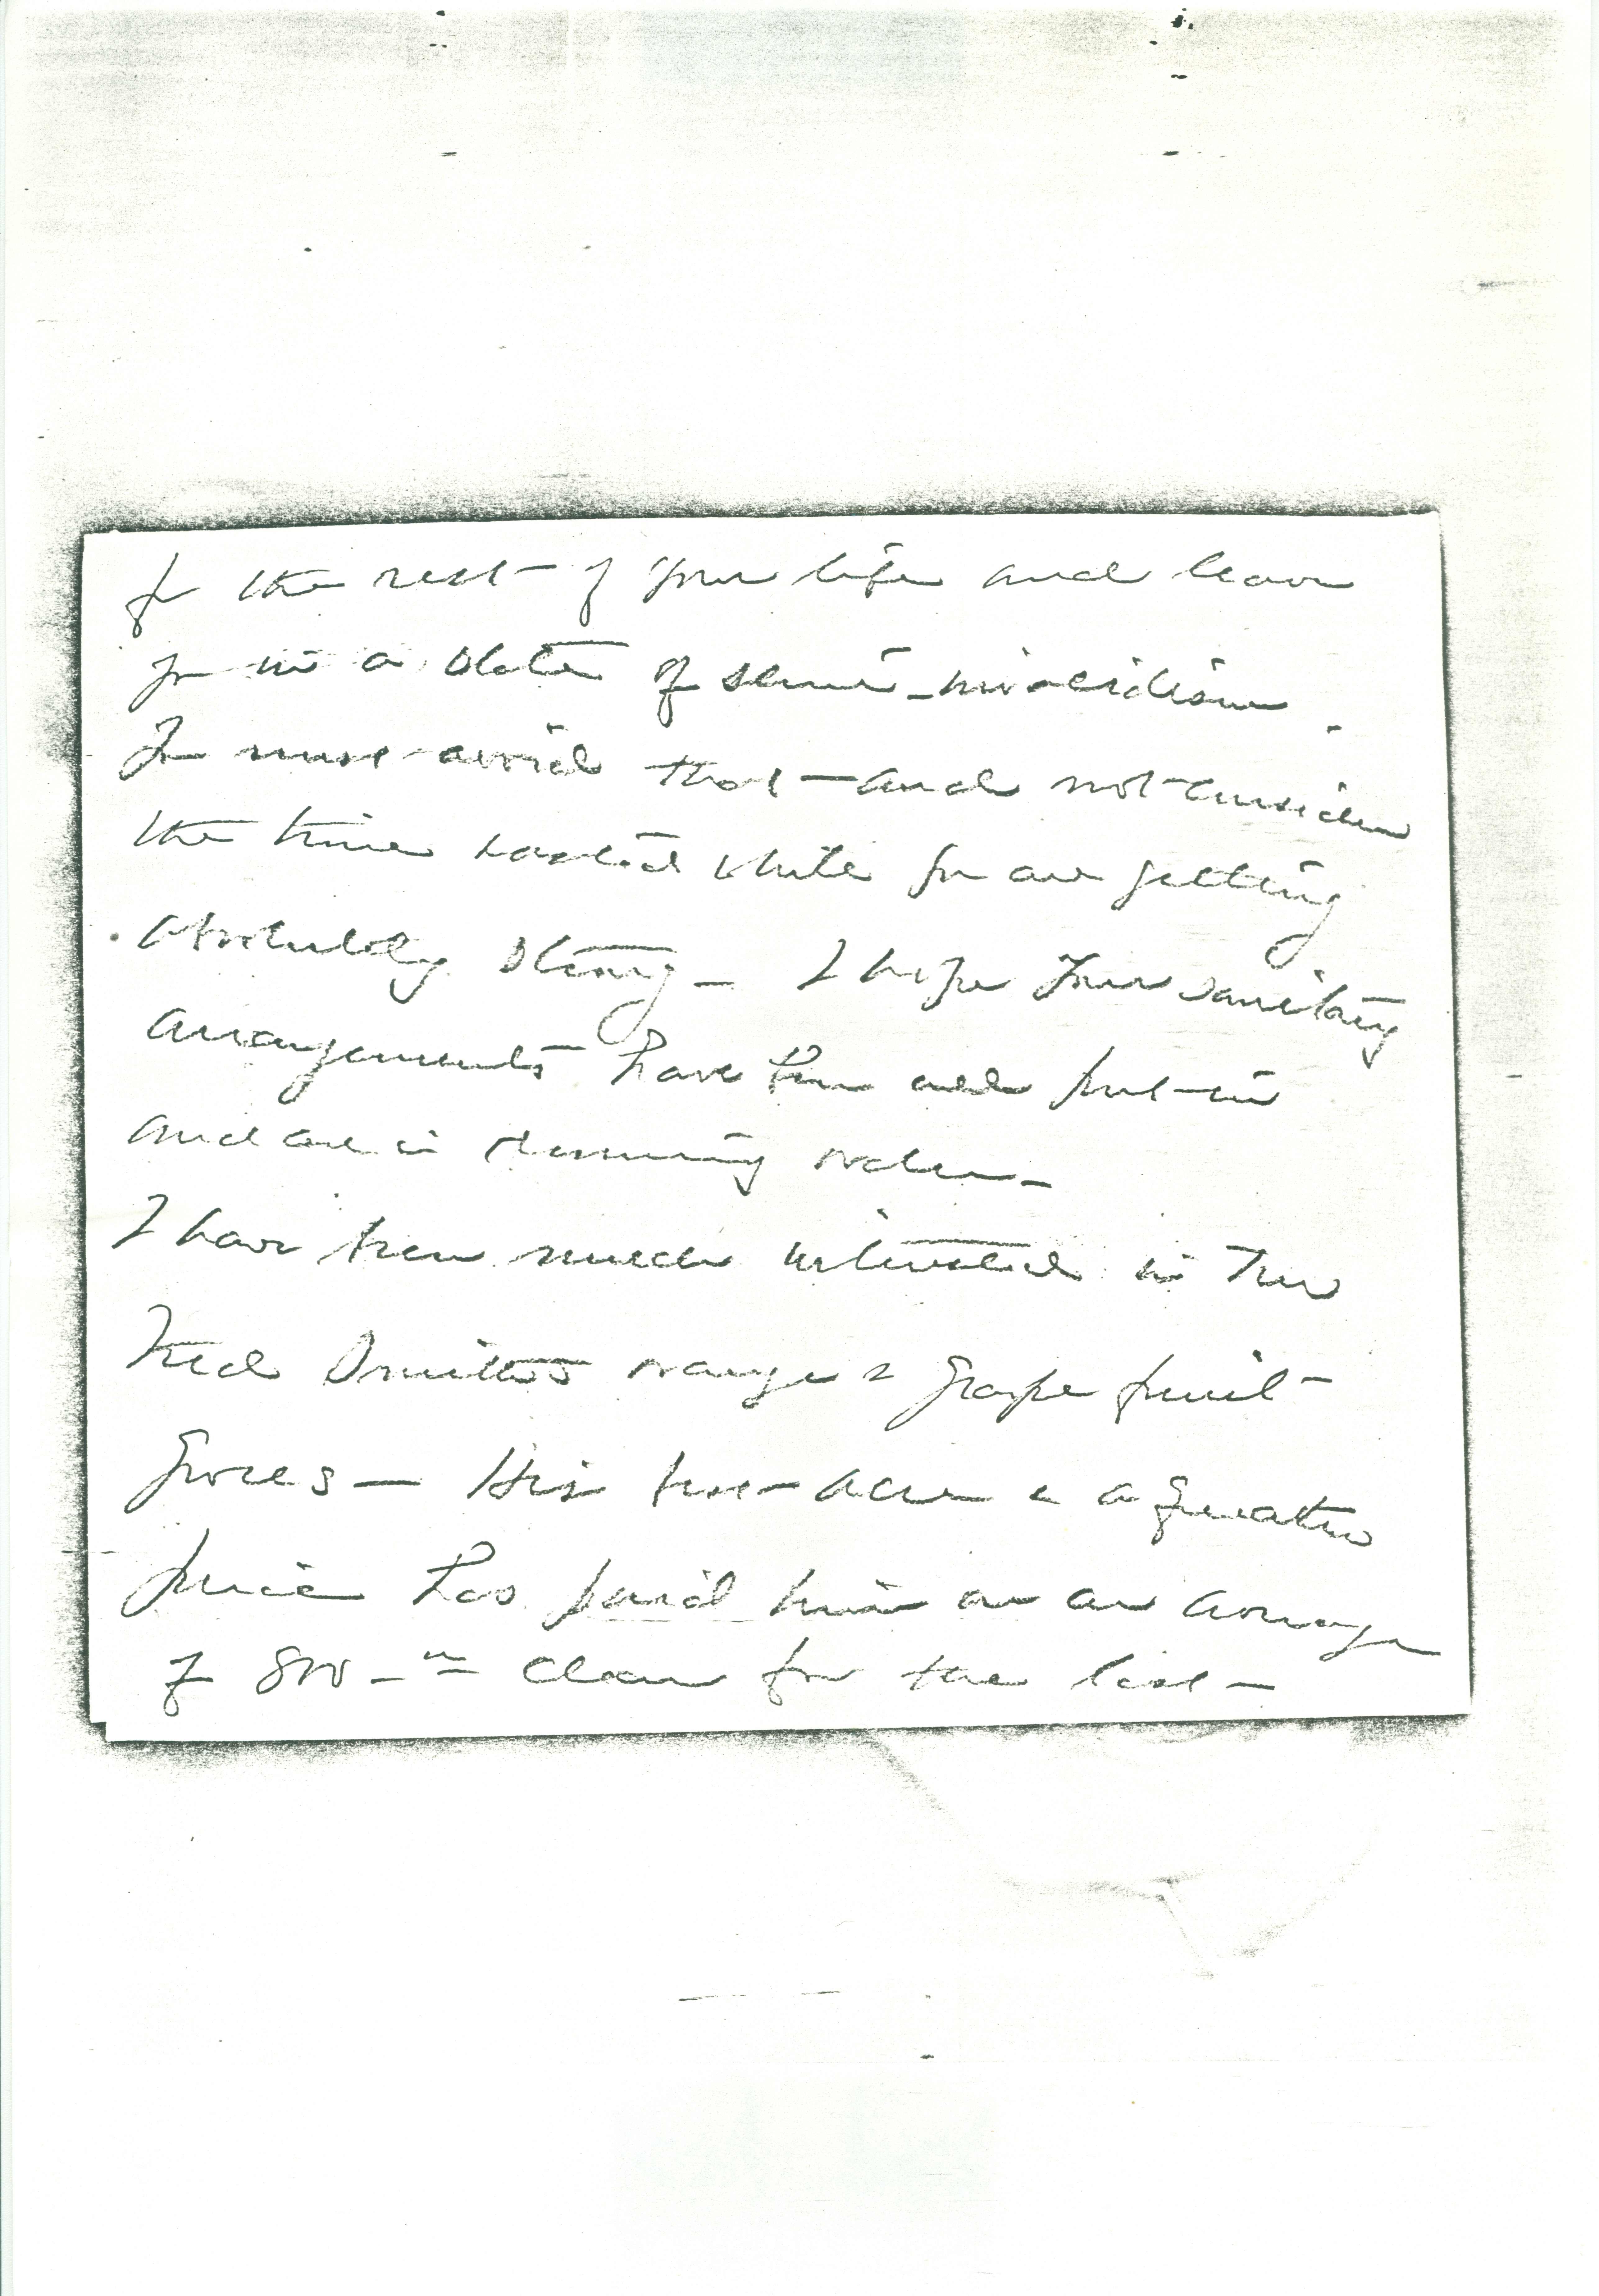 for the rest of your life and leave
you in a state of semi-invalidism.
You must avoid that — and not consider
the time wasted while you are getting
absolutely strong — I hope your sanitary
arrangements have been all put in
and are in running order —
I have been much interested in
Fred orange & grape fruit
groves — His acre &
has paid him on an average
of 800 — clear for the last —